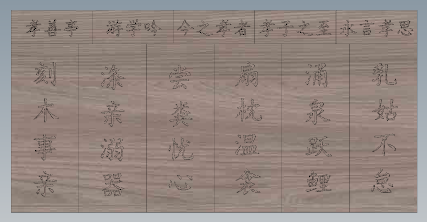 孝善亭
游学吟
今之孝者
孝子之至
永言孝思
乳姑不怠
涌泉跃鲤
扇枕温衾
尝粪忧心
涤亲溺器
刻木事亲